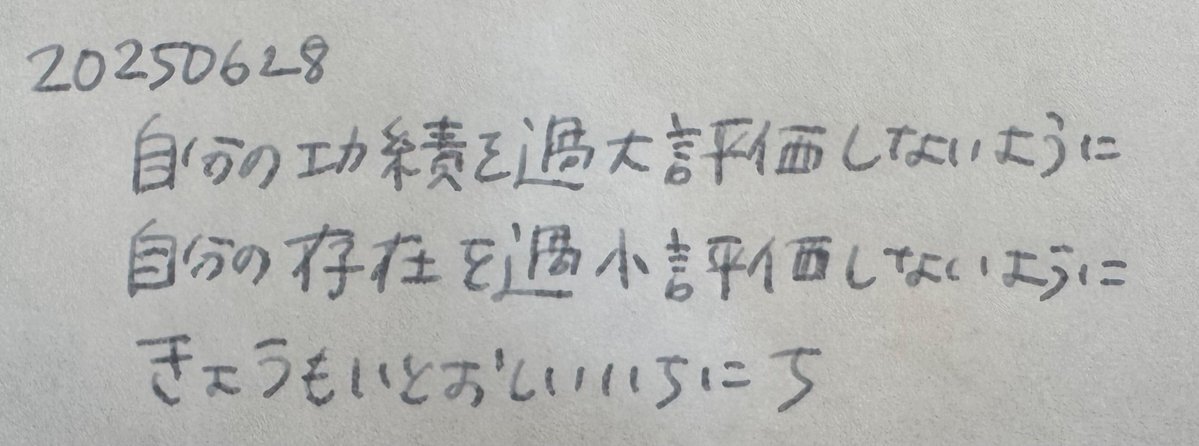 20250628
自分の功績を過大評価しないように
自分の存在を過小評価しないように
きょうもいとおしいいちにち